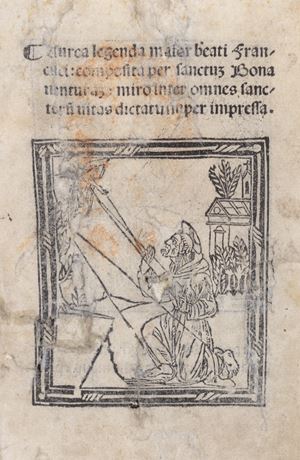 ⁋ Aurea legenda maior beati Fran-
cisci: composita per sanctuȝ Bona
uenturaȝ: miro inter omnes sanc-
torũ vitas dictatu nuper impressa.